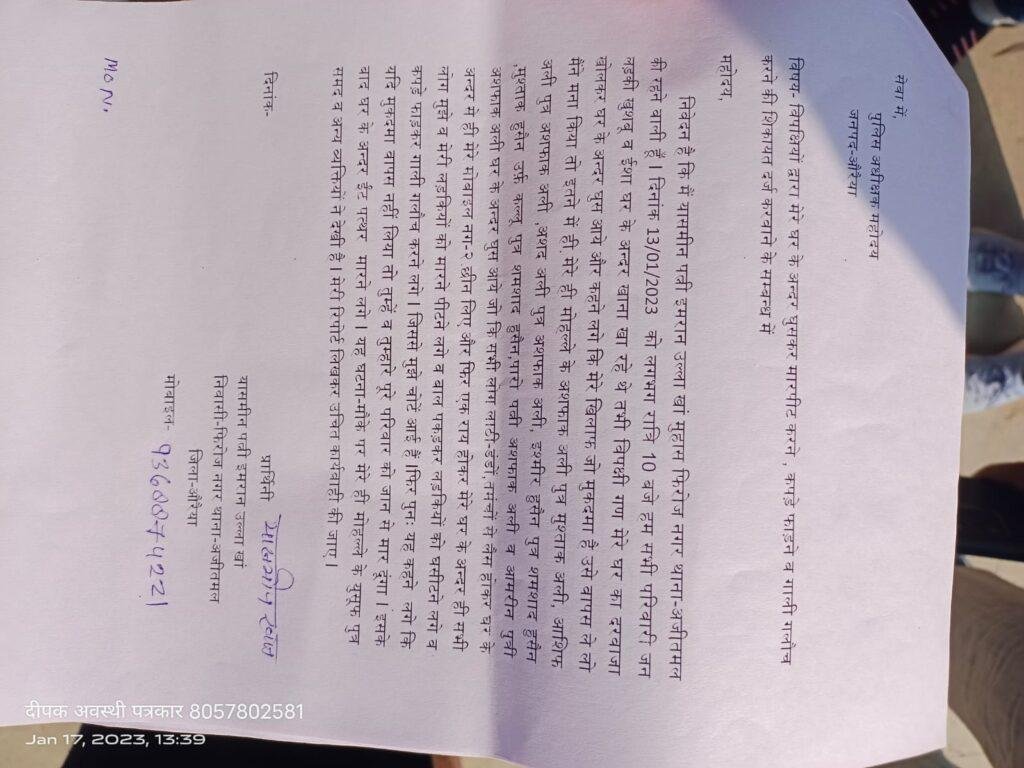 सेवा में,
पुलिस अधीक्षक महोदय
जनपद-औरैया
विषय- विपक्षियों द्वारा मेरे घर के अन्दर घुसकर मारपीट करने , कपड़े फाड़ने व गाली गलौच
करने की शिकायत दर्ज करवाने के सम्बन्ध में
महोदय,
निवेदन है कि मैं यासमीन पत्नी इमरान उल्ला खां मुहाल फिरोज नगर थाना-अजीतमल
की रहने वाली हूँ । दिनांक 13/01/2023 को लगभग रात्रि 10 बजे हम सभी परिवारी जन
लड़की खुशबू व ईशा घर के अन्दर खाना खा रहे थे तभी विपक्षी गण मेरे घर का दरवाजा
खोलकर घर के अन्दर घुस आये और कहने लगे कि मेरे खिलाफ जो मुकदमा है उसे वापस ले लो
मैंने मना किया तो इतने में ही, मेरे ही मोहल्ले के अशफाक अली पुत्र मुश्ताक अली, आशिफ
अली पुत्र अशफाक अली ,अशद अली पुत्र अशफाक अली, इश्मीर हुसैन पुत्र शमशाद हुसैन
,मुश्ताक हुसैन उर्फ कल्लू पुत्र शमशाद हुसैन,पारो पत्नी अशफाक अली व आमरीन पुत्री
अशफाक अली घर के अन्दर घुस आये जो कि सभी लोग लाठी-डंडों,तमंचों से लैस होकर घर के
अन्दर में ही मेरे मोबाइल नग-२ छीन लिए और फिर एक राय होकर मेरे घर के अन्दर ही सभी
लोग मुझे व मेरी लड़कियों को मारने पीटने लगे व बाल पकड़कर लड़कियों को घसीटने लगे व
कपड़े फाड़कर गाली गलौच करने लगे । जिससे मुझे चोटें आई है ।फिर पुनः यह कहने लगे कि
यदि मुकदमा वापस नहीं लिया तो तुम्हें व तुम्हारे पूरे परिवार को जान से मार दूंगा । इसके
बाद घर के अन्दर ईंट पत्थर मारने लगे । यह घटना-मौके पर मेरे ही मोहल्ले के युसूफ पुत्र
समद व अन्य व्यक्तियों ने देखी है । मेरी रिपोर्ट लिखकर उचित कार्यवाही की जाए ।
दिनांक-
प्रार्थिनी
यासमीन पत्नी इमरान उल्ला खां
निवासी-फिरोज नगर थाना-अजीतमल
जिला-औरैया
मोबाइल- 9360074221
Mo. N.
दीपक अवस्थी पत्रकार 8057802581
Jan 17, 2023, 13:39